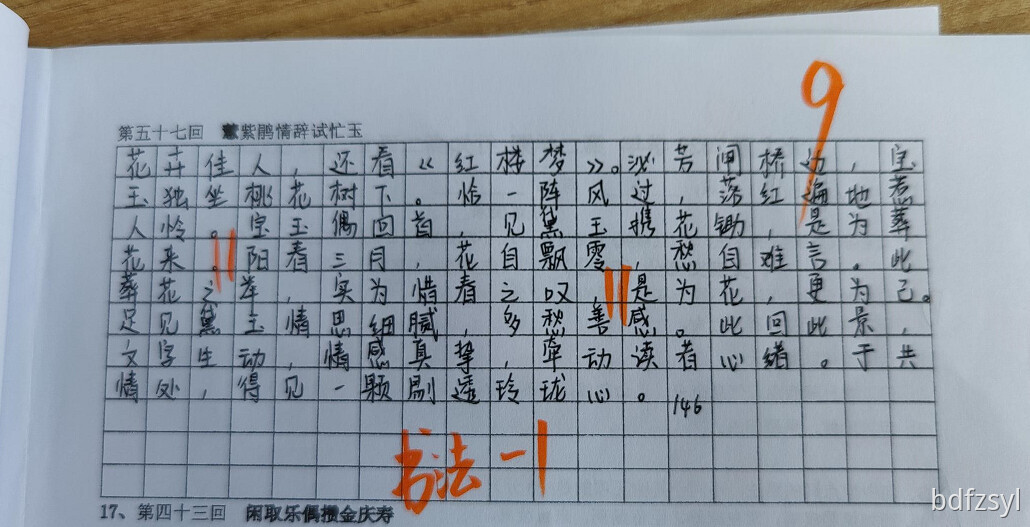 第五十七回 慧紫鹃情辞试忙玉
9
花卉佳人，还看《红楼梦》。沁芳闸桥边，宝
玉独坐桃花树下。恰一阵风过，落红遍地惹
人怜。宝玉偶回首，见黛玉携花锄，是为葬
花来。阳春三月，花自飘零，愁自难言。此
葬花之举，实为惜春之叹，是为花，更为己。
足见黛玉情思细腻，多愁善感。此回此景，
文字生动，情感真挚，牵动读者心绪。于共
情处，得见一颗剔透玲珑心。
146
书法-1
17、第四十三回 闲取乐偶攒金庆寿
bdfzsyl